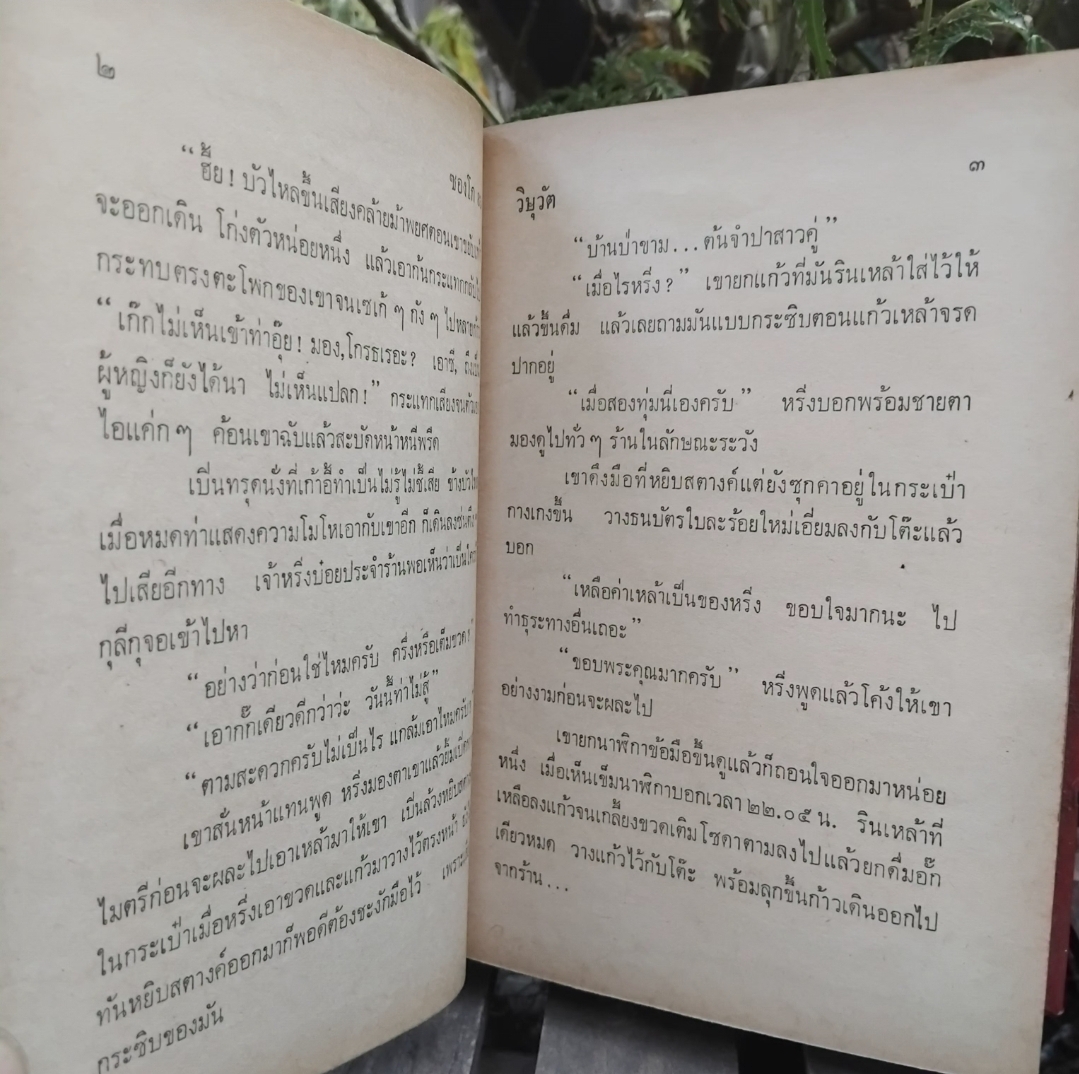 ๒
ของโก
“ฮื้ย! บัวไหลขึ้นเสียงคล้ายม้าพยศตอนเขาขยับ
จะออกเดิน โก่งตัวหน่อยหนึ่ง แล้วเอาก้นกระแทกกลับ
กระทบตรงตะโพกของเขาจนเซเก้ ๆ กัง ๆ ไปหลาย
“เก๊กไม่เห็นเข้าท่าอุ๊ย! มอง, โกรธเรอะ? เอาซี,
ผู้หญิงก็ยังได้นา ไม่เห็นแปลก!” กระแทกเสียงจน
ไอแค่ก ๆ ค้อนเขาฉับแล้วสะบัดหน้าหนีพรืด
เปิ่นทรุดนั่งที่เก้าอี้ทำเป็นไม่รู้ไม่ชี้เสีย ข้าง
เมื่อหมดท่าแสดงความโมโหเอากับเขาอีก ก็เดินลงส้น
ไปเสียอีกทาง เจ้าหริ่งบ๋อยประจำร้านพอเห็นว่าเป็นใคร
กุลีกุจอเข้าไปหา
“อย่างว่าก่อนใช่ไหมครับ ครึ่งหรือเต็มขวด
“เอากั๊กเดียวดีกว่าว่ะ วันนี้ท่าไม่สู้”
“ตามสะดวกครับไม่เป็นไร แกล้มเอาไหมครับ
เขาสั่นหน้าแทนพูด หริ่งมองตาเขาแล้วยิ้ม
ไมตรีก่อนจะผละไปเอาเหล้ามาให้เขา เปิ่นล้วงหยิบ
ในกระเป๋าเมื่อหริ่งเอาขวดและแก้วมาวางไว้ตรงหน้า
ทันหยิบสตางค์ออกมาก็พอดีต้องชะงักมือไว้ เพราะ
กระซิบของมัน
๓
วิษุวัต
“บ้านป่าขาม...ต้นจำปาสาวคู่”
“เมื่อไรหริ่ง?” เขายกแก้วที่มันรินเหล้าใส่ไว้ให้
แล้วขึ้นดื่ม แล้วเลยถามมันแบบกระซิบตอนแก้วเหล้าจรด
ปากอยู่
“เมื่อสองทุ่มนี่เองครับ” หริ่งบอกพร้อมชายตา
มองดูไปทั่ว ๆ ร้านในลักษณะระวัง
เขาดึงมือที่หยิบสตางค์แต่ยังซุกคาอยู่ในกระเป๋า
กางเกงขึ้น วางธนบัตรใบละร้อยใหม่เอี่ยมลงกับโต๊ะแล้ว
บอก
“เหลือค่าเหล้าเป็นของหริ่ง ขอบใจมากนะ ไป
ทำธุระทางอื่นเถอะ”
“ขอบพระคุณมากครับ” หริ่งพูดแล้วโค้งให้เขา
อย่างงามก่อนจะผละไป
เขายกนาฬิกาข้อมือขึ้นดูแล้วก็ถอนใจออกมาหน่อย
หนึ่ง เมื่อเห็นเข็มนาฬิกาบอกเวลา ๒๒.๐๕ น. รินเหล้าที่
เหลือลงแก้วจนเกลี้ยงขวดเติมโซดาตามลงไปแล้วยกดื่มอั๊ก
เดียวหมด วางแก้วไว้กับโต๊ะ พร้อมลุกขึ้นก้าวเดินออกไป
จากร้าน...